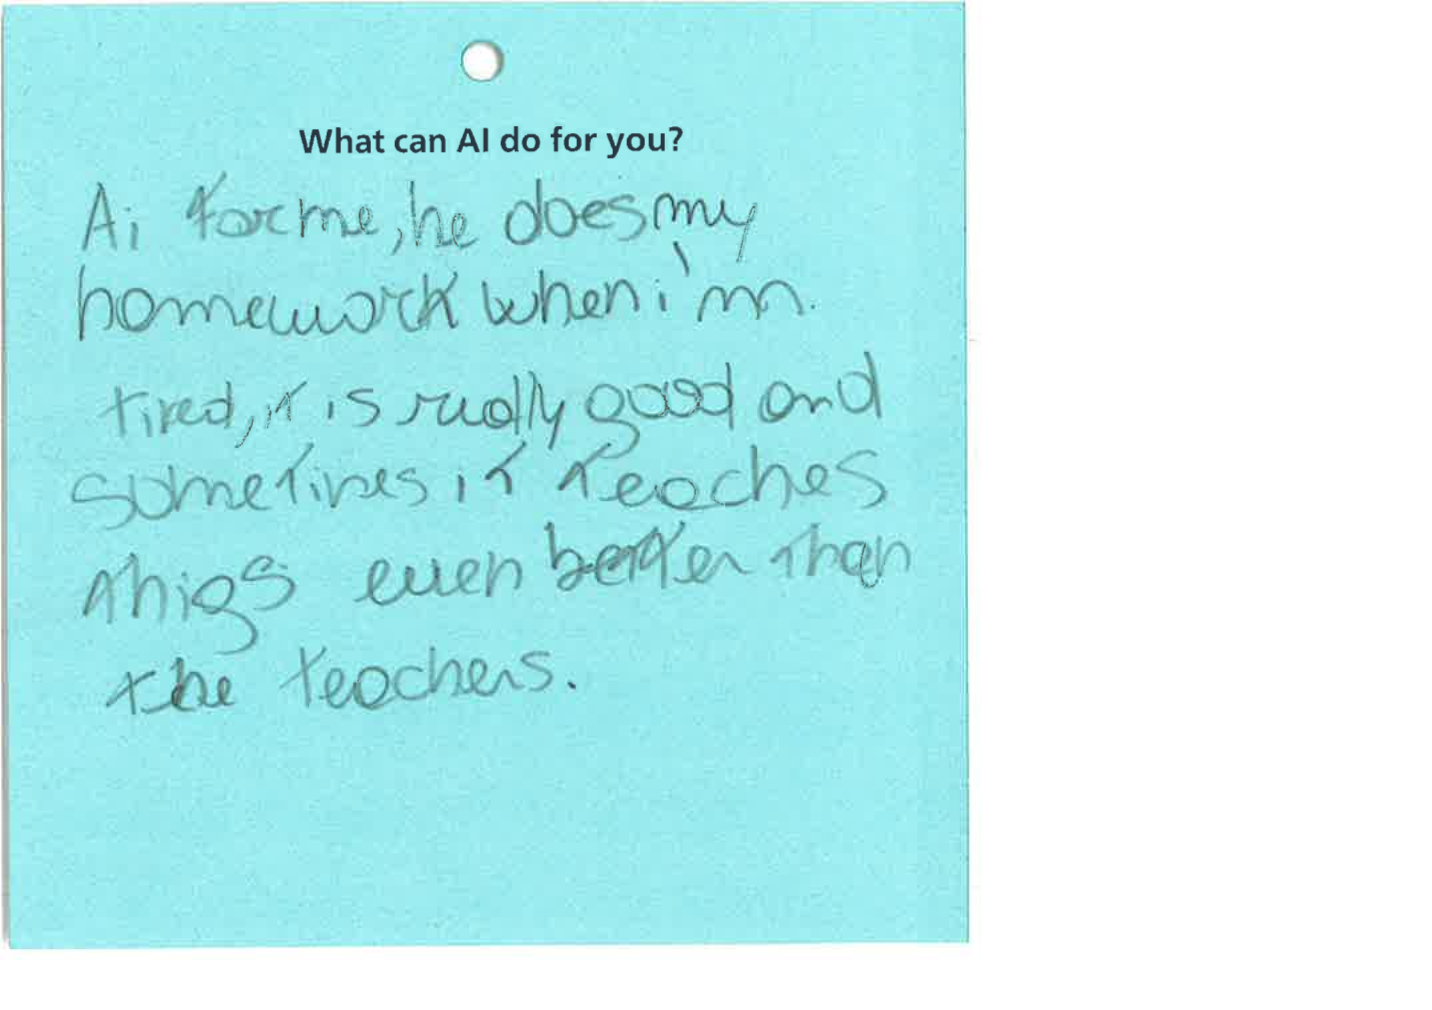 What can AI do for you?
Ai for me, he does my
homework when i'm.
tired, it is really good and
sometimes it teaches
thigs even better than
the teachers.